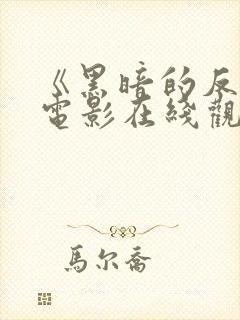 《黑暗的反
電影在綫觀
馬尔喬